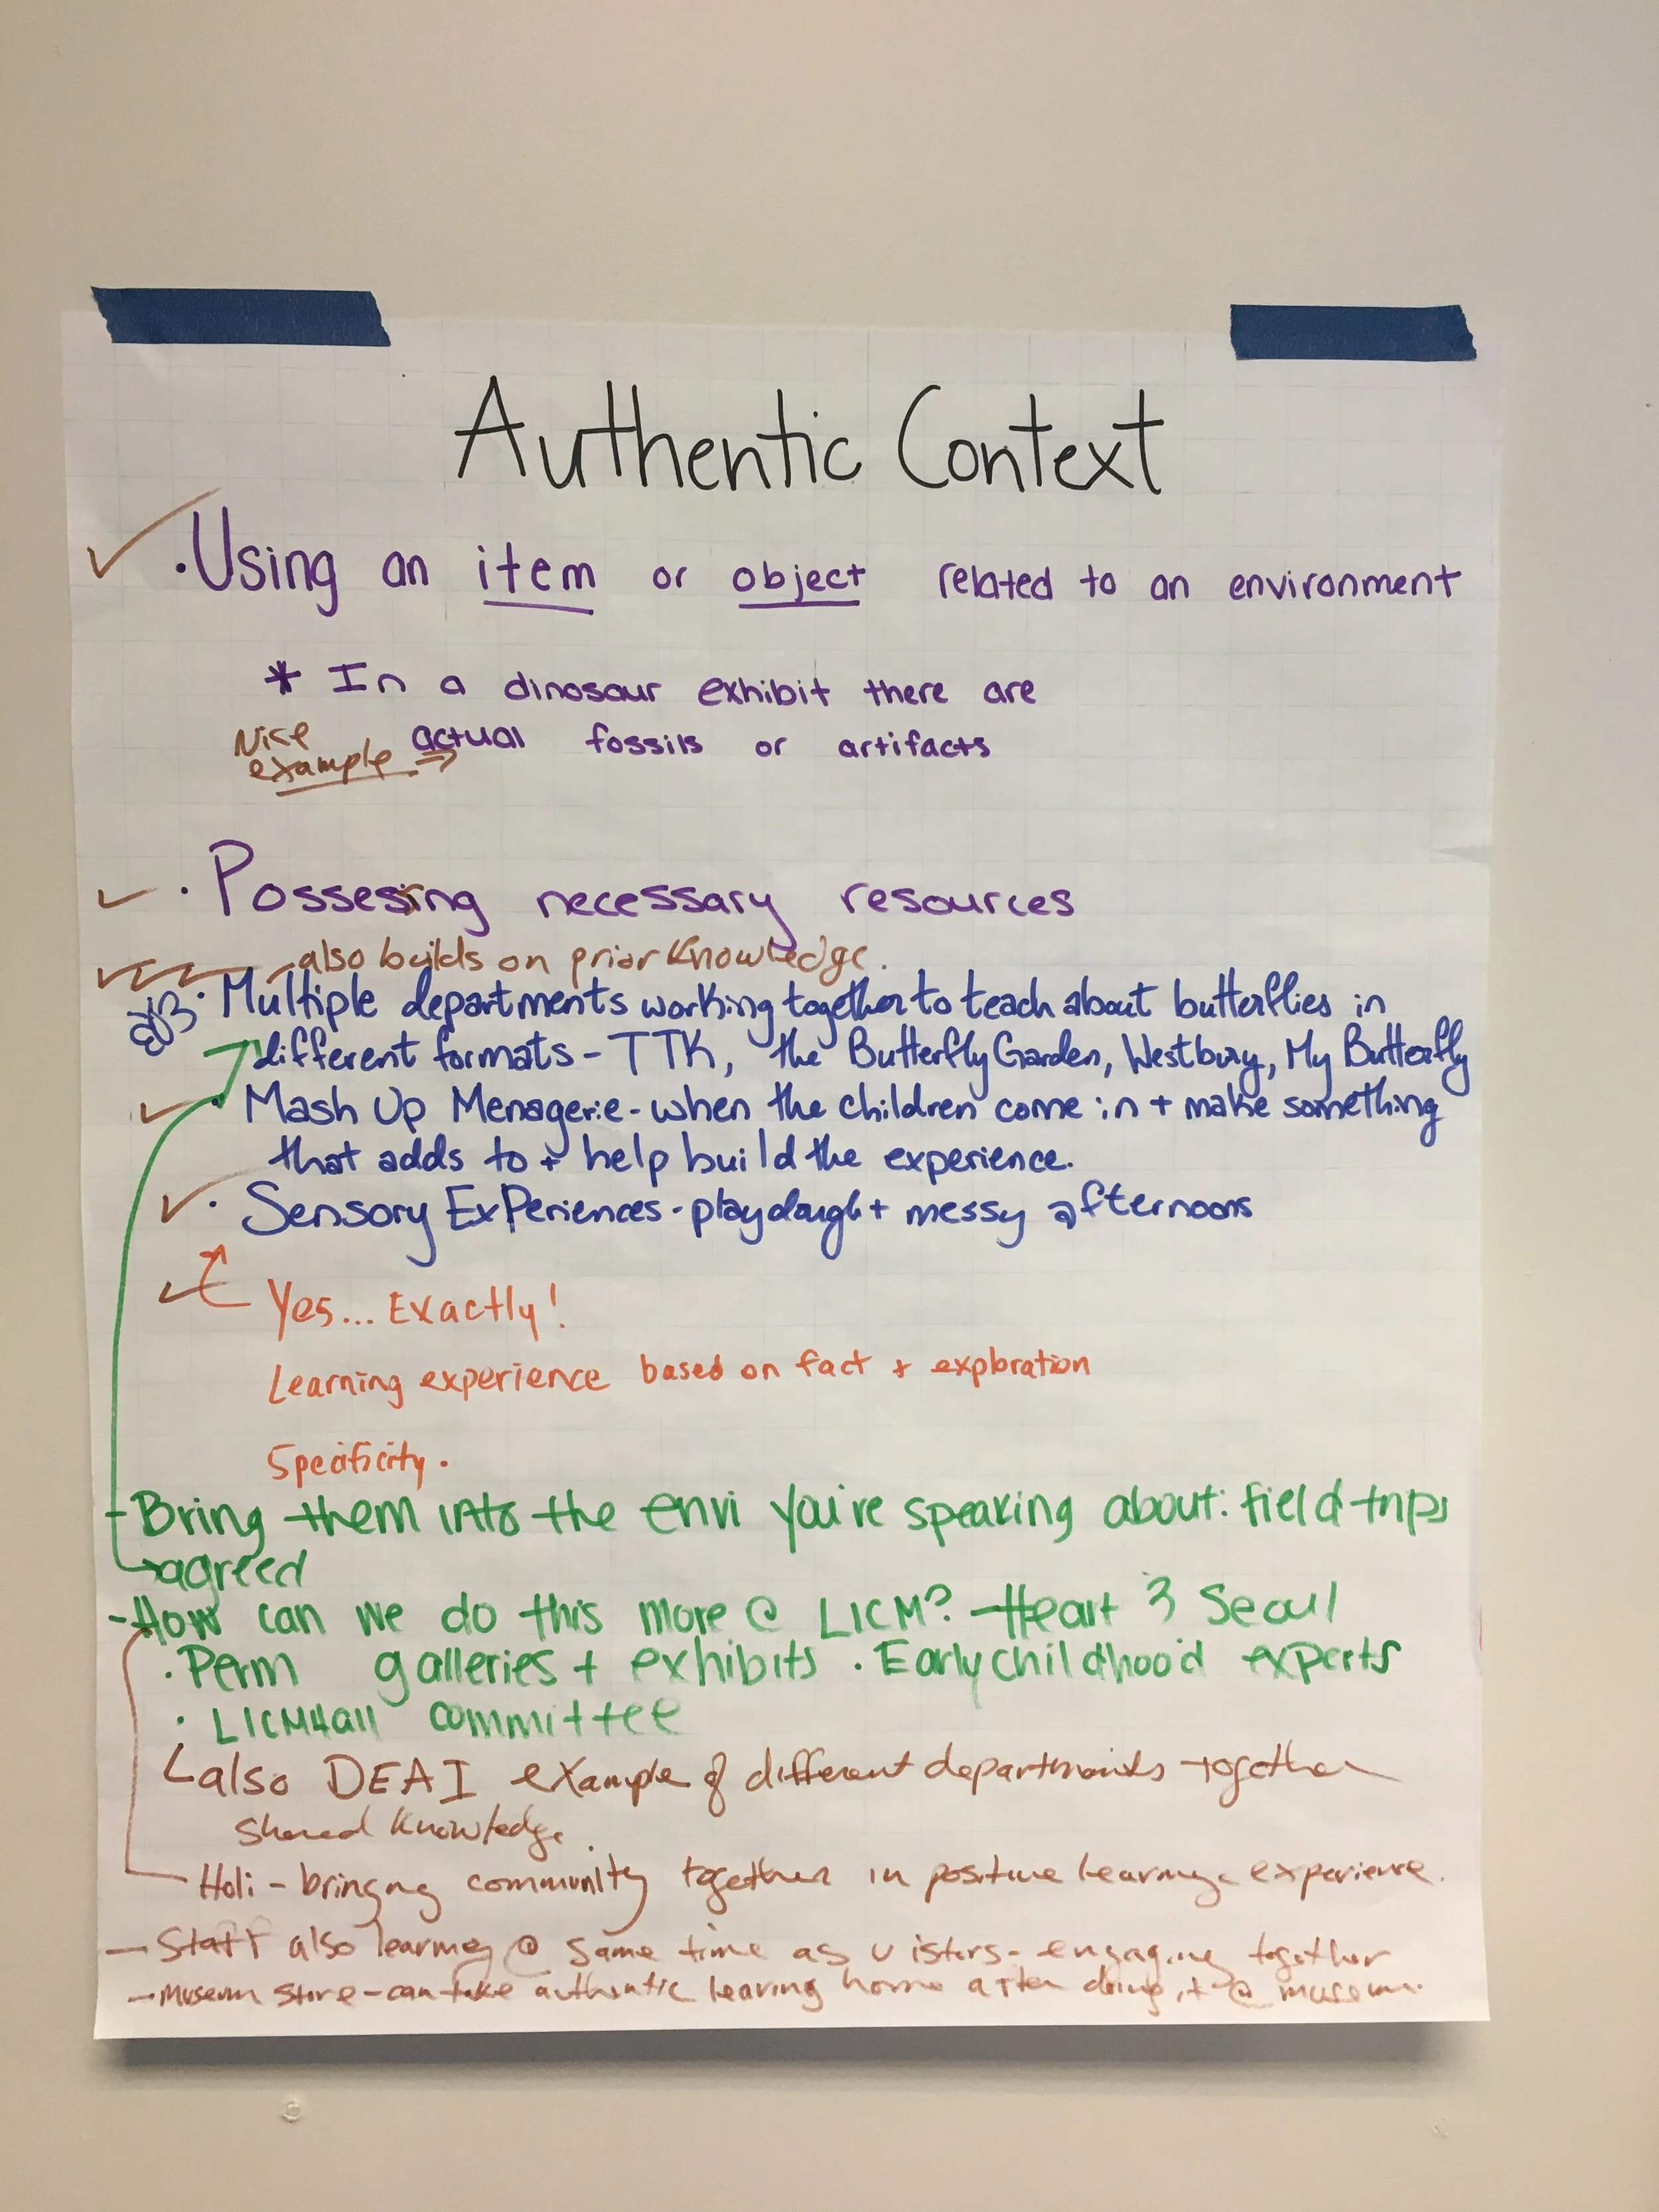 Authentic Context
· Using an item or object related to an environment
* In a dinosaur exhibit there are
Nice
example ⇒
actual fossils or artifacts
· Possesing necessary resources
- also builds on prior knowledge.
· Multiple departments working together to teach about butterflies in
different formats - TTK, the Butterfly Garden, Westbury, My Butterfly
· Mash Up Menagerie - when the children come in + make something
that adds to + help build the experience.
· Sensory ExPeriences - playdough + messy afternoons
Yes... Exactly!
Learning experience based on fact + exploration
Specificity.
- Bring them into the envi you're speaking about: field trips
agreed
- How can we do this more @ LICM? - Heart & Seoul
· Perm galleries + exhibits · Early childhood experts
· LICM4all committee
also DEAI example of different departments together
Shared knowledge.
Holi - bringing community together in positive learning experience.
- Staff also learning @ same time as visitors - engaging together
- Museum store - can take authentic learing home after doing it @ museum.